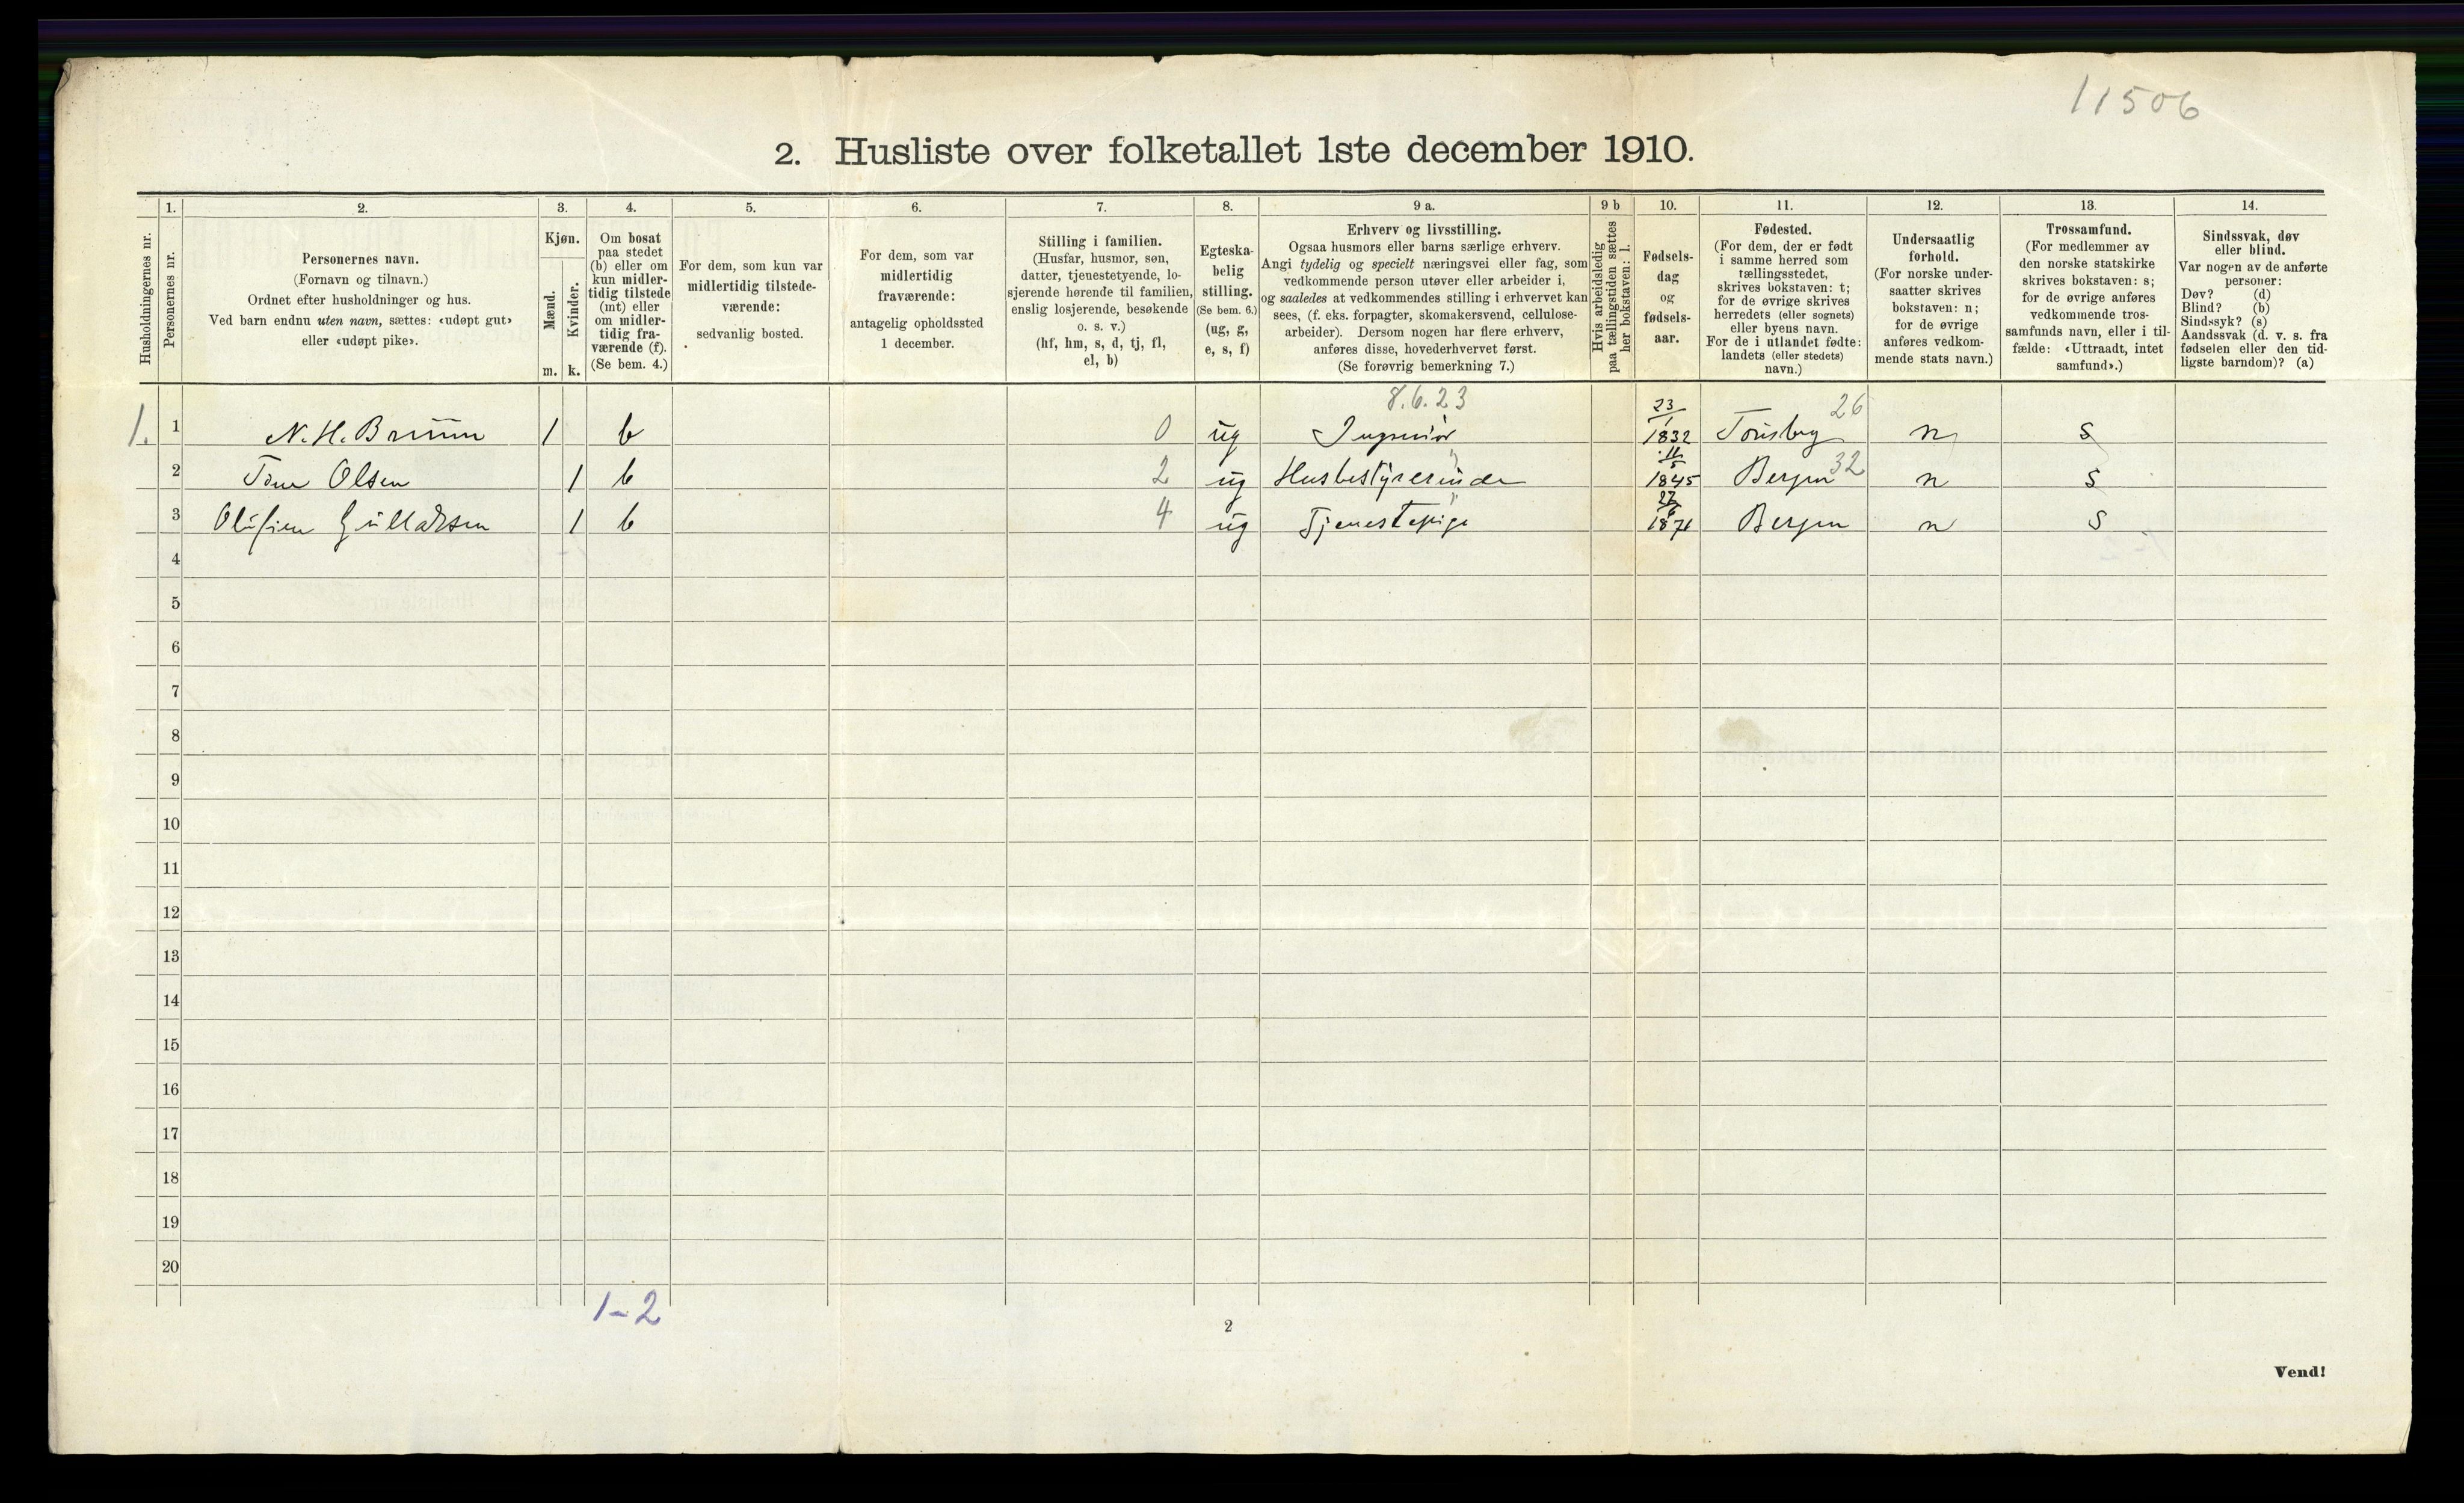 11506
2. Husliste over folketallet 1ste december 1910.
Husholdningernes nr.
1.
Personernes nr.
2.
Personernes navn.
(Fornavn og tilnavn.)
Ordnet efter husholdninger og hus.
Ved barn endnu uten navn, sættes: «udøpt gut»
eller «udøpt pike».
3.
Kjøn.
Mænd.
Kvinder.
m. k.
4.
Om bosat
paa stedet
(b) eller om
kun midler-
tidig tilstede
(mt) eller
om midler-
tidig fra-
værende (f).
(Se bem. 4.)
5.
For dem, som kun var
midlertidig tilstede-
værende:
sedvanlig bosted.
6.
For dem, som var
midlertidig
fraværende:
antagelig opholdssted
1 december.
7.
Stilling i familien.
(Husfar, husmor, søn,
datter, tjenestetyende, lo-
sjerende hørende til familien,
enslig losjerende, besøkende
o. s. v.)
(hf, hm, s, d, tj, fl,
el, b)
8.
Egteska-
belig
stilling.
(Se bem. 6.)
(ug, g,
e, s, f)
9 a.
Erhverv og livsstilling.
Ogsaa husmors eller barns særlige erhverv.
Angi tydelig og specielt næringsvei eller fag, som
vedkommende person utøver eller arbeider i,
og saaledes at vedkommendes stilling i erhvervet kan
sees, (f. eks. forpagter, skomakersvend, cellulose-
arbeider). Dersom nogen har flere erhverv,
anføres disse, hovederhvervet først.
(Se forøvrig bemerkning 7.)
9 b
Hvis arbeidsledig
paa tællingstiden sættes
her bokstaven: l.
10.
Fødsels-
dag
og
fødsels-
aar.
11.
Fødested.
(For dem, der er født
i samme herred som
tællingsstedet,
skrives bokstaven: t;
for de øvrige skrives
herredets (eller sognets)
eller byens navn.
For de i utlandet fødte:
landets (eller stedets)
navn.)
12.
Undersaatlig
forhold.
(For norske under-
saatter skrives
bokstaven: n;
for de øvrige
anføres vedkom-
mende stats navn.)
13.
Trossamfund.
(For medlemmer av
den norske statskirke
skrives bokstaven: s;
for de øvrige anføres
vedkommende tros-
samfunds navn, eller i til-
fælde: «Uttraadt, intet
samfund».)
14.
Sindssvak, døv
eller blind.
Var nogen av de anførte
personer:
Døv? (d)
Blind? (b)
Sindssyk? (s)
Aandssvak (d. v. s. fra
fødselen eller den tid-
ligste barndom)? (a)
8.6.23
1. 1 N. H. Bruun 1 b 0 ug Ingeniör 23/1 1832 Tönsberg 26 n s
2 Olsen 1 b 2 ug Husbestyrerinde " 11/5 1845 Bergen 32 n s
3 1 b 4 ug Tjenestepige " 1871 Bergen n s
4
5
6
7
8
9
10
11
12
13
14
15
16
17
18
19
20
1-2
2
Vend!